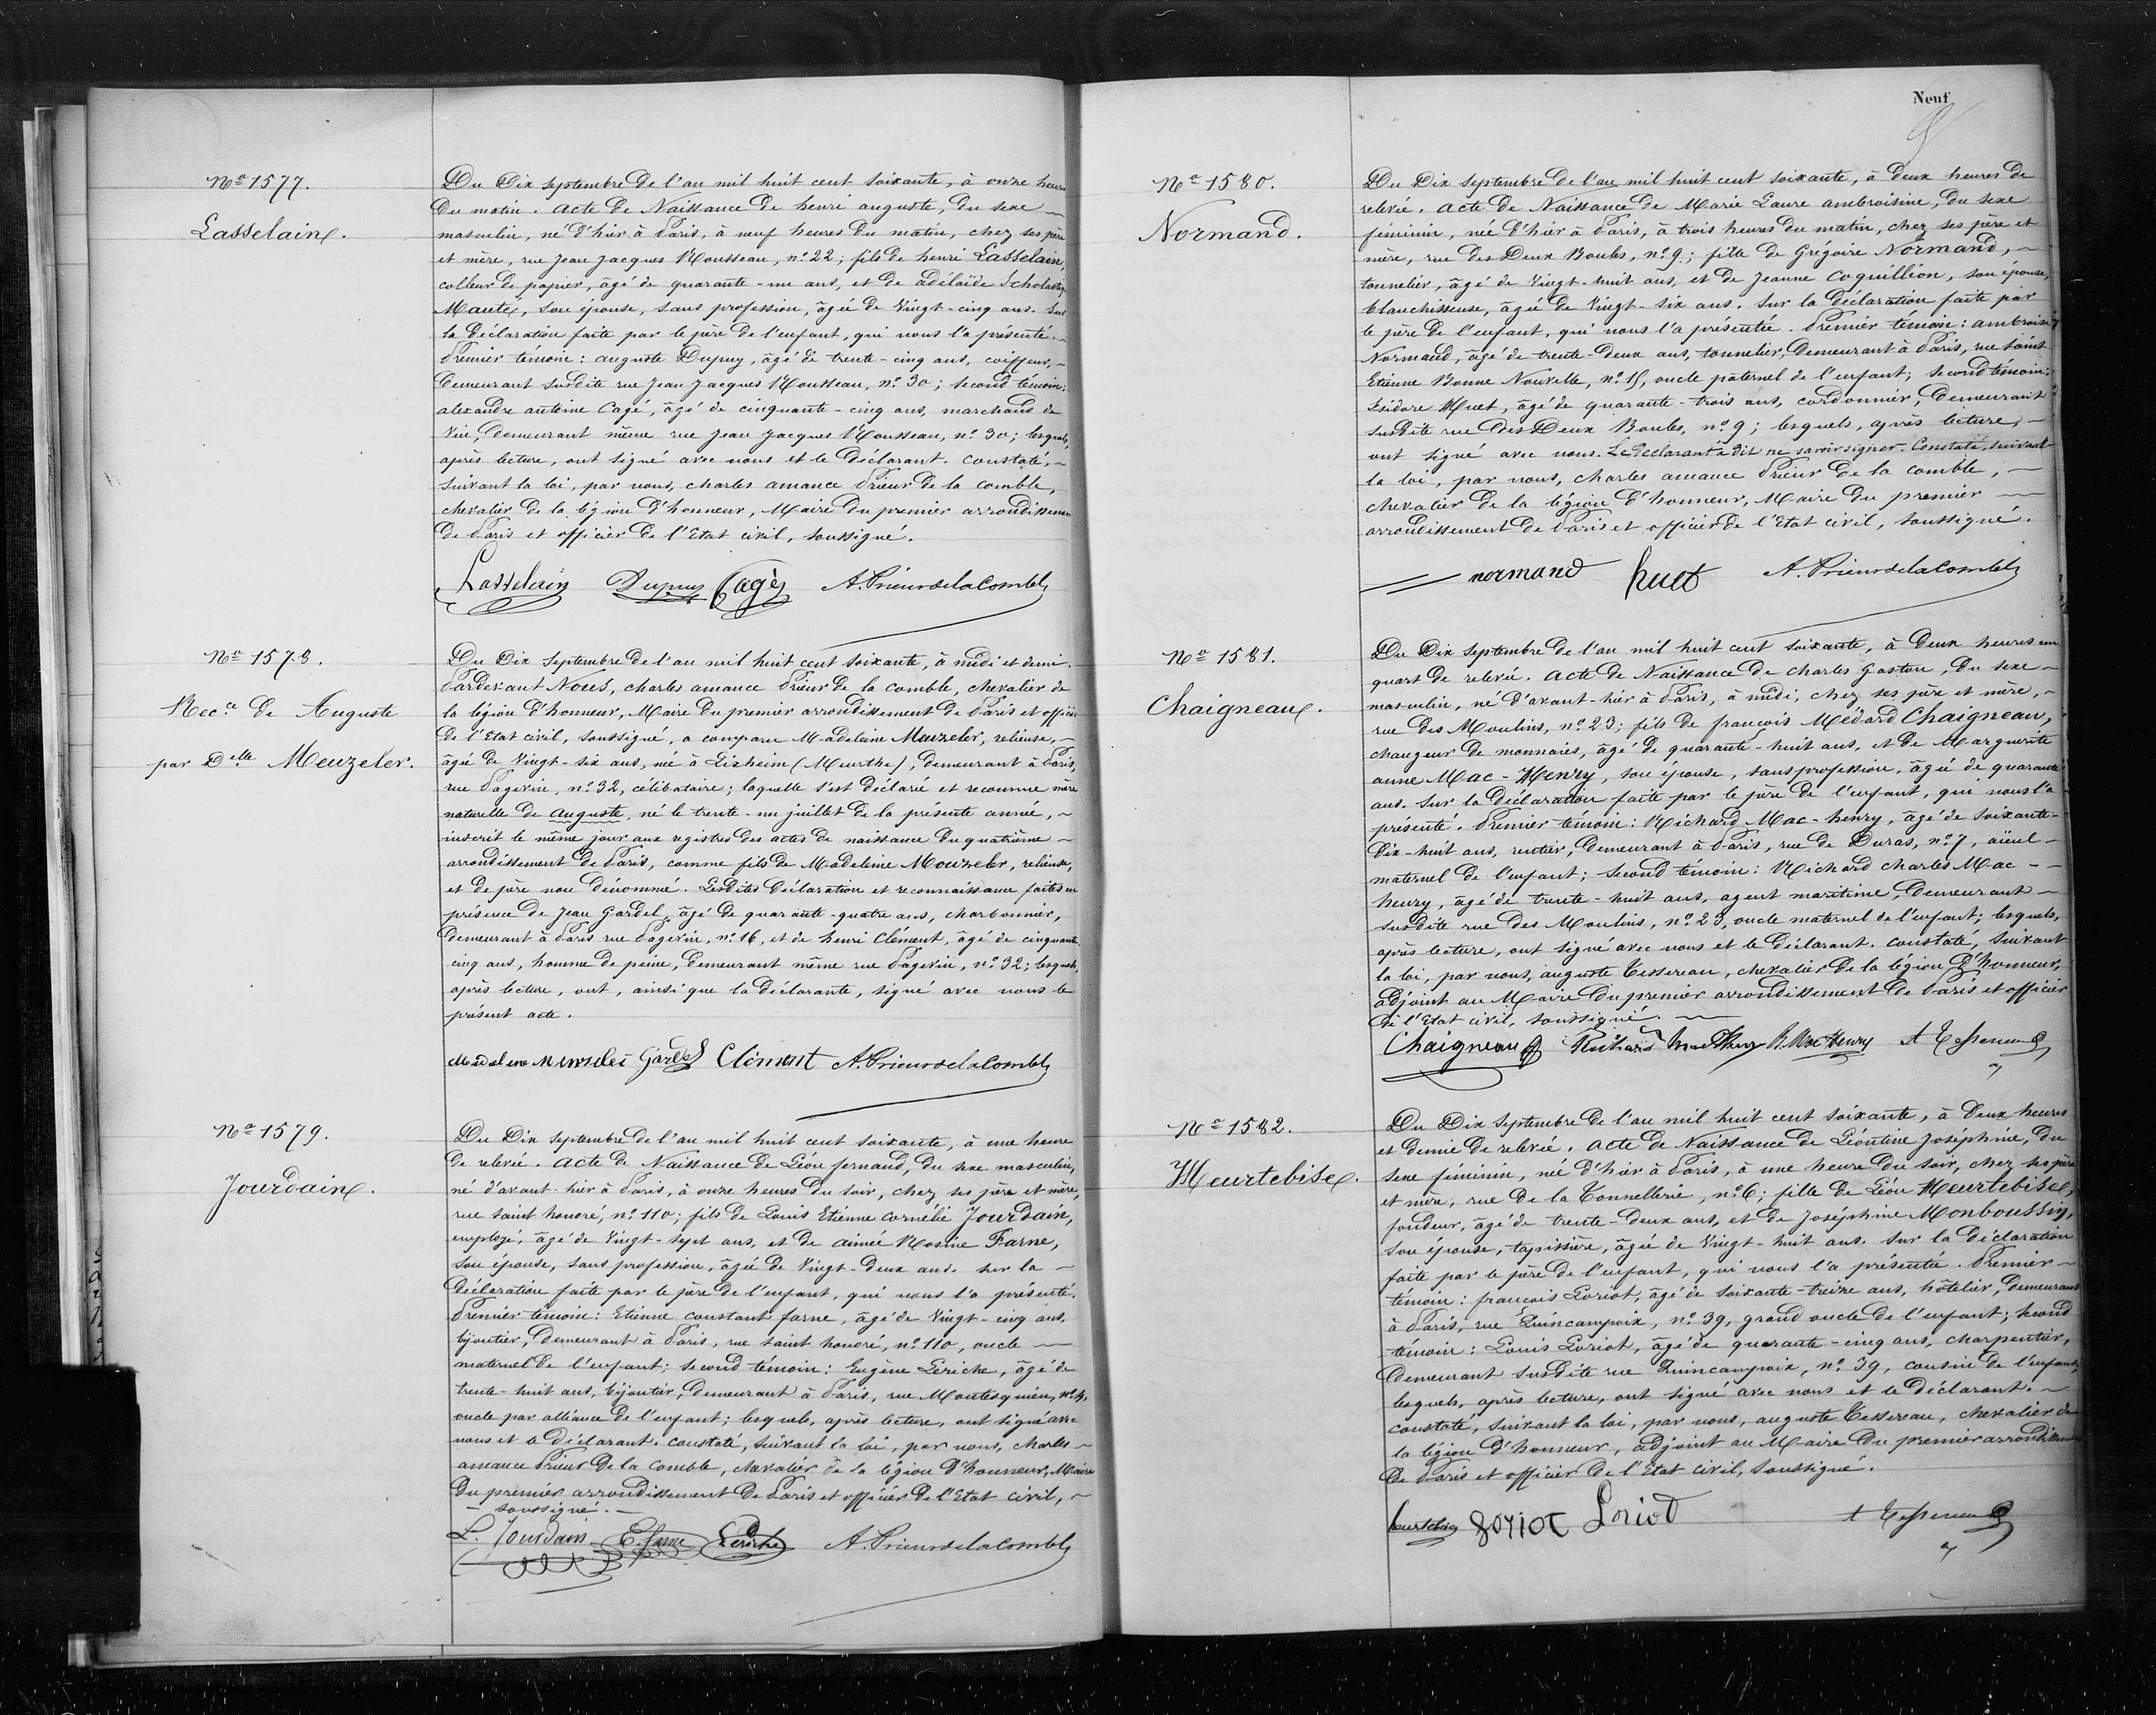 No 1577.
Lasselain.
Du Dix septembre de l'an mil huit cent soixante, à onze heures
du matin. acte de Naissance de henri auguste, du sexe
masculin, né d'hier à Paris, à neuf heures du matin, chez ses père
et mère, rue Jean Jacques Rousseau, no 22; fils de henri Lasselain,
colleur de papier, âgé de quarante-un ans, et de adélaïde Scholastique
Mauté, son épouse, sans profession, âgée de vingt-cinq ans. Sur
la déclaration faite par le père de l'enfant, qui nous l'a présenté.
Premier témoin: auguste Dupuy, âgé de trente-cinq ans, coiffeur,
demeurant susdite rue Jean Jacques Rousseau, no 30; second témoin:
alexandre antoine Cagé, âgé de cinquante-cinq ans, marchand de
vin, demeurant même rue Jean Jacques Rousseau, no 30; lesquels,
après lecture, ont signé avec nous et le déclarant. constaté,
suivant la loi, par nous, charles amance Prieur de la comble,
chevalier de la légion d'honneur, Maire du premier arrondissement
de Paris et officier de l'Etat civil, soussigné.
Lasselain Dupuy Cagé A. Prieur de la Comble
No 1578.
Recce de Auguste
par Delle Meuzeler.
Du Dix septembre de l'an mil huit cent soixante, à midi et demi.
Pardevant Nous, charles amance Prieur de la comble, chevalier de
la légion d'honneur, Maire du premier arrondissement de Paris et officier
de l'Etat civil, soussigné, a comparu Madeleine Meuzeler, relieuse,
âgée de vingt-six ans, née à Lixheim (Meurthe), demeurant à Paris,
rue Pagevin, no 32, célibataire; laquelle s'est déclarée et reconnue mère
naturelle de auguste, né le trente-un juillet de la présente année,
inscrit le même jour aux registres des actes de naissance du quatrième
arrondissement de Paris, comme fils de Madeleine Mouzeler, relieuse,
et de père non dénommé. Lesdites déclaration et reconnaissance faites en
présence de Jean Gardel, âgé de quarante-quatre ans, charbonnier,
demeurant à Paris rue Pagevin, no 16, et de henri Clément, âgé de cinquante-
cinq ans, homme de peine, demeurant même rue Pagevin, no 32; lesquels,
après lecture, ont, ainsi que la déclarante, signé avec nous le
présent acte.
Madelene Clément A. Prieur de la Comble
No 1579.
Jourdain.
Du Dix septembre de l'an mil huit cent soixante, à une heure
de relevée. acte de Naissance de Léon fernand, du sexe masculin,
né d'avant-hier à Paris, à onze heures du soir, chez ses père et mère,
rue saint honoré, no 110; fils de Louis Etienne Cornélie Jourdain,
employé, âgé de vingt-sept ans, et de aimée Rosine Farne,
son épouse, sans profession, âgée de vingt-deux ans. sur la
déclaration faite par le père de l'enfant, qui nous l'a présenté.
Premier témoin: Etienne constant farne, âgé de vingt-cinq ans,
bijoutier, demeurant à Paris, rue saint honoré, no 110, oncle
maternel de l'enfant; second témoin: Eugène Leriche, âgé de
trente-huit ans, bijoutier, demeurant à Paris, rue Montesquieu, no 4,
oncle par alliance de l'enfant; lesquels, après lecture, ont signé avec
nous et le déclarant. constaté, suivant la loi, par nous, charles
amance Prieur de la Comble, chevalier de la légion d'honneur, Maire
du premier arrondissement de Paris et officier de l'Etat civil,
soussigné.
L. Jourdain E. farne Leriche A. Prieur de la Comble
Neuf
9
No 1580.
Normand.
Du Dix septembre de l'an mil huit cent soixante, à deux heures de
relevée. acte de Naissance de Marie Laure ambroisine, du sexe
féminin, née d'hier à Paris, à trois heures du matin, chez ses père et
mère, rue des Deux Boules, no 9; fille de Grégoire Normand,
tonnelier, âgé de vingt-huit ans, et de Jeanne Coquillion, son épouse,
blanchisseuse, âgée de vingt-six ans. Sur la déclaration faite par
le père de l'enfant, qui nous l'a présentée. Premier témoin: ambroise
Normand, âgé de trente-deux ans, tonnelier, demeurant à Paris, rue saint
Etienne Bonne Nouvelle, no 15, oncle paternel de l'enfant; second témoin:
Isidore Huet, âgé de quarante-trois ans, cordonnier, demeurant
susdite rue des Deux Boules, no 9; lesquels, après lecture,
ont signé avec nous. Le déclarant a dit ne savoir signer. Constaté, suivant
la loi, par nous, charles amance Prieur de la comble,
chevalier de la légion d'honneur, Maire du premier
arrondissement de Paris et officier de l'Etat civil, soussigné.
normand huet A. Prieur de la Comble
No 1581.
Chaigneau.
Du Dix septembre de l'an mil huit cent soixante, à deux heures un
quart de relevée. acte de Naissance de charles gaston, du sexe
masculin, né d'avant-hier à Paris, à midi, chez ses père et mère,
rue des Moulins, no 23; fils de françois Médard Chaigneau,
changeur de monnaies, âgé de quarante-huit ans, et de Marguerite
anne Mac-Henry, son épouse, sans profession, âgée de quarante
ans. sur la déclaration faite par le père de l'enfant, qui nous l'a
présenté. Premier témoin: Richard Mac-henry, âgé de soixante-
dix-huit ans, rentier, demeurant à Paris, rue de Duras, no 7, aïeul
maternel de l'enfant; second témoin: Richard charles Mac-
henry, âgé de trente-huit ans, agent maritime, demeurant
susdite rue des Moulins, no 23, oncle maternel de l'enfant; lesquels,
après lecture, ont signé avec nous et le déclarant. constaté, suivant
la loi, par nous, auguste Tessereau, chevalier de la légion d'honneur,
adjoint au Maire du premier arrondissement de Paris et officier
de l'Etat civil, soussigné.
Chaigneau Richard Mac Henry R. MacHenry A Tessereau
No 1582.
Heurtebise.
Du Dix septembre de l'an mil huit cent soixante, à deux heures
et demie de relevée. acte de Naissance de Léontine Joséphine, du
sexe féminin, née d'hier à Paris, à une heure du soir, chez ses père
et mère, rue de la Tonnellerie, no 6; fille de Léon Heurtebise,
fondeur, âgé de trente-deux ans, et de Joséphine Monboussin,
son épouse, tapissière, âgée de vingt-huit ans. sur la déclaration
faite par le père de l'enfant, qui nous l'a présentée. Premier
témoin: françois Loriot, âgé de soixante-treize ans, hôtelier, demeurant
à Paris, rue Quincampoix, no 39, grand oncle de l'enfant; second
témoin: Louis Loriot, âgé de quarante-cinq ans, charpentier,
demeurant susdite rue Quincampoix, no 39, cousin de l'enfant;
lesquels, après lecture, ont signé avec nous et le déclarant.
constaté, suivant la loi, par nous, auguste Tessereau, chevalier de
la légion d'honneur, adjoint au Maire du premier arrondissement
de Paris et officier de l'Etat civil, soussigné.
heurtebise Loriot Loriot A Tessereau